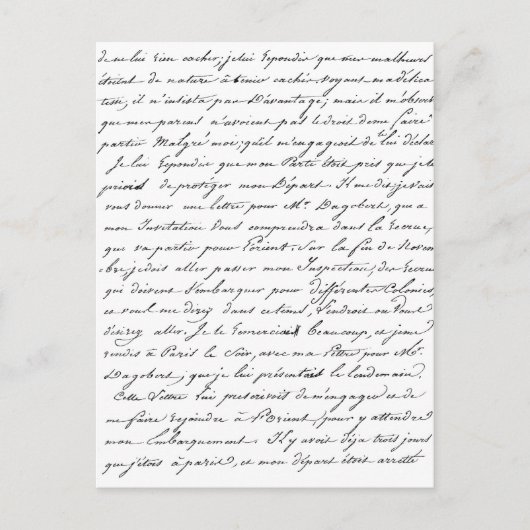 de ne lui rien cacher; je lui repondis que mes malheurs
étoient de nature à tenir cachés voyant ma délica
tesse, il n'insista pas D'avantage; mais il m'observ
que mes parens n'avoient pas le droit de me faire
partir Malgré moi; qu'il m'engageoit de le lui déclar
Je lui Repondis que mon Parti étoit pris que je le
priois de protéger mon Départ. Il me dit, je vais
vous donner une lettre pour Mr. Dagobert, qui a
mon Invitation Vous comprendra dans la Recrue,
que va partir pour L'orient. Sur la fin de Novem
bre, je dois aller passer mon Inspection, des Recrue
qui doivent s'embarquer pour differentes Colonies,
et vous me direz dans ce tems, l'endroit ou Vous
désirez aller. Je le Remerciai beaucoup, et je me
rendis à Paris le Soir, avec ma Lettre pour Mr.
Dagobert, que je lui présentai le lendemain.
Cette Lettre lui prescrivoit de m'engager et de
me faire Rejoindre à L'Orient, pour y attendre
mon Embarquement. Il y avoit déja trois jours
que j'étois à paris, et mon départ étoit arretté